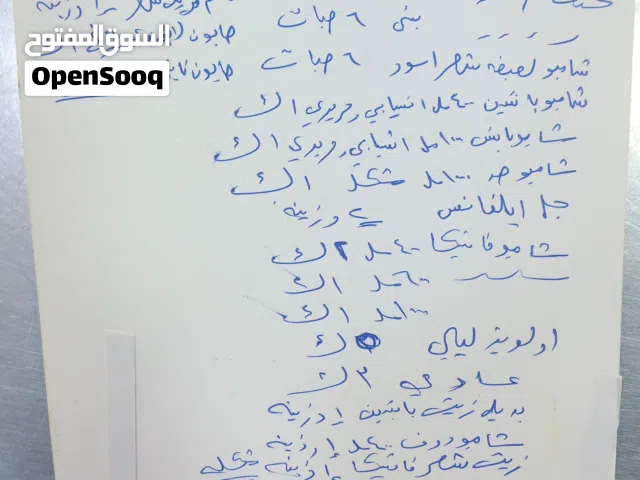 السوق المفتوح
OpenSooq
بني ٦ حبات
شامبو لصبغه شعر اسود ٦ حبات
صابون
شامبو بانتين ٤٠٠مل انسيابي وحريري ١ك
شامبو بانتين ١٠٠٠مل انسيابي وحريري ١ك
شامبو ١٠٠٠مل مشكل ١ك
جل ايلغانس ٢ درزينه
شامبو فاتيكا ٤٠٠مل ٢ك
٦٠٠مل ١ك
١٠٠٠مل ١ك
اولويز ليلي ك
عادي ٣ك
بديل زيت بانتين ١درزينه
شامبو دوف ٤٠٠مل ١درزينه
زيت شعر فاتيكا ١درزينه مشكله